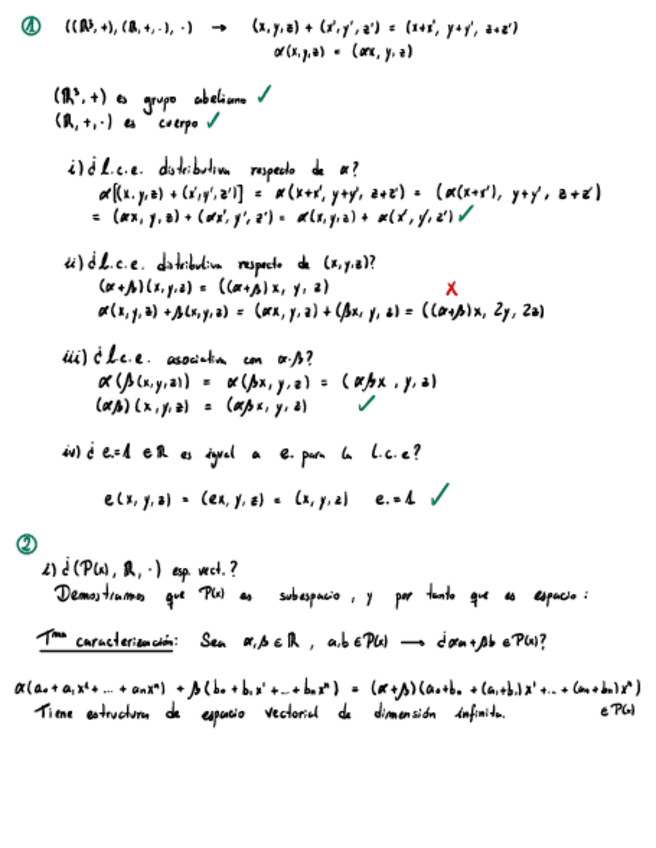 ① ((ℝ³, +), (ℝ, +, ·), ·) → (x, y, z) + (x', y', z') = (x+x', y+y', z+z')
α(x, y, z) = (αx, y, z)
(ℝ³, +) es grupo abeliano ✓
(ℝ, +, ·) es cuerpo ✓
i) ¿l.c.e. distributiva respecto de α?
α[(x, y, z) + (x', y', z')] = α(x+x', y+y', z+z') = (α(x+x'), y+y', z+z')
= (αx, y, z) + (αx', y', z') = α(x, y, z) + α(x', y', z') ✓
ii) ¿l.c.e. distributiva respecto de (x, y, z)?
(α+β)(x, y, z) = ((α+β)x, y, z) X
α(x, y, z) + β(x, y, z) = (αx, y, z) + (βx, y, z) = ((α+β)x, 2y, 2z)
iii) ¿l.c.e. asociativa con α·β?
α(β(x, y, z)) = α(βx, y, z) = (αβx, y, z)
(αβ)(x, y, z) = (αβx, y, z) ✓
iv) ¿e.=1 ∈ ℝ es igual a e. para la l.c.e?
e(x, y, z) = (ex, y, z) = (x, y, z) e.=1 ✓
②
i) ¿(P(x), ℝ, ·) esp. vect.?
Demostramos que P(x) es subespacio, y por tanto que es espacio:
Tma caracterización: Sea α, β ∈ ℝ, a, b ∈ P(x) → ¿αa+βb ∈ P(x)?
α(a₀ + a₁x¹ + ... + aₙxⁿ) + β(b₀ + b₁x¹ + ... + bₙxⁿ) = (α+β)(a₀+b₀ + (a₁+b₁)x¹ + ... + (aₙ+bₙ)xⁿ)
Tiene estructura de espacio vectorial de dimensión infinita. ∈ P(x)